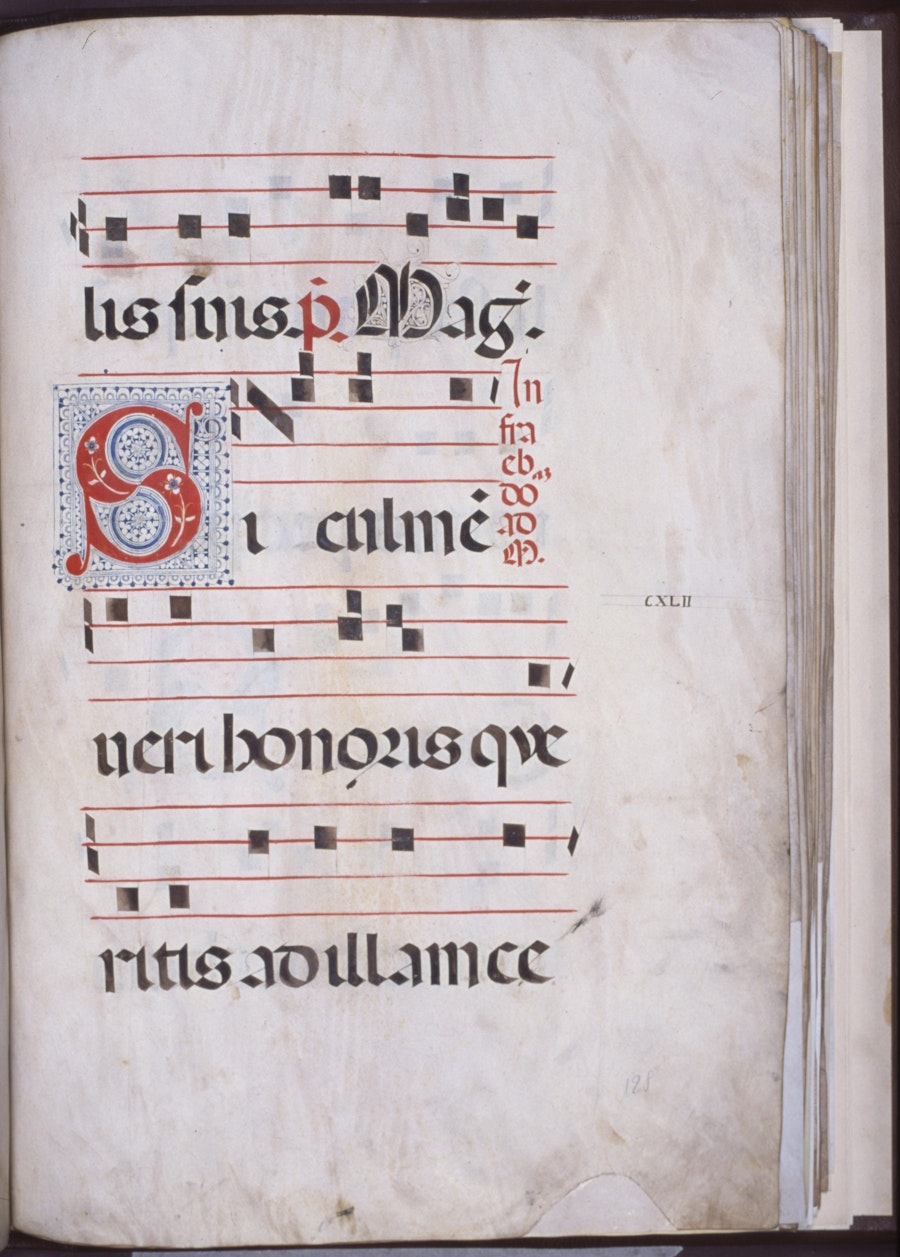 lis suis. p̄. Mag̅.
Si culmē
In
fra
eb
do
ad
M.
ueri honoris que
CXLII
ritis ad illam ce
128